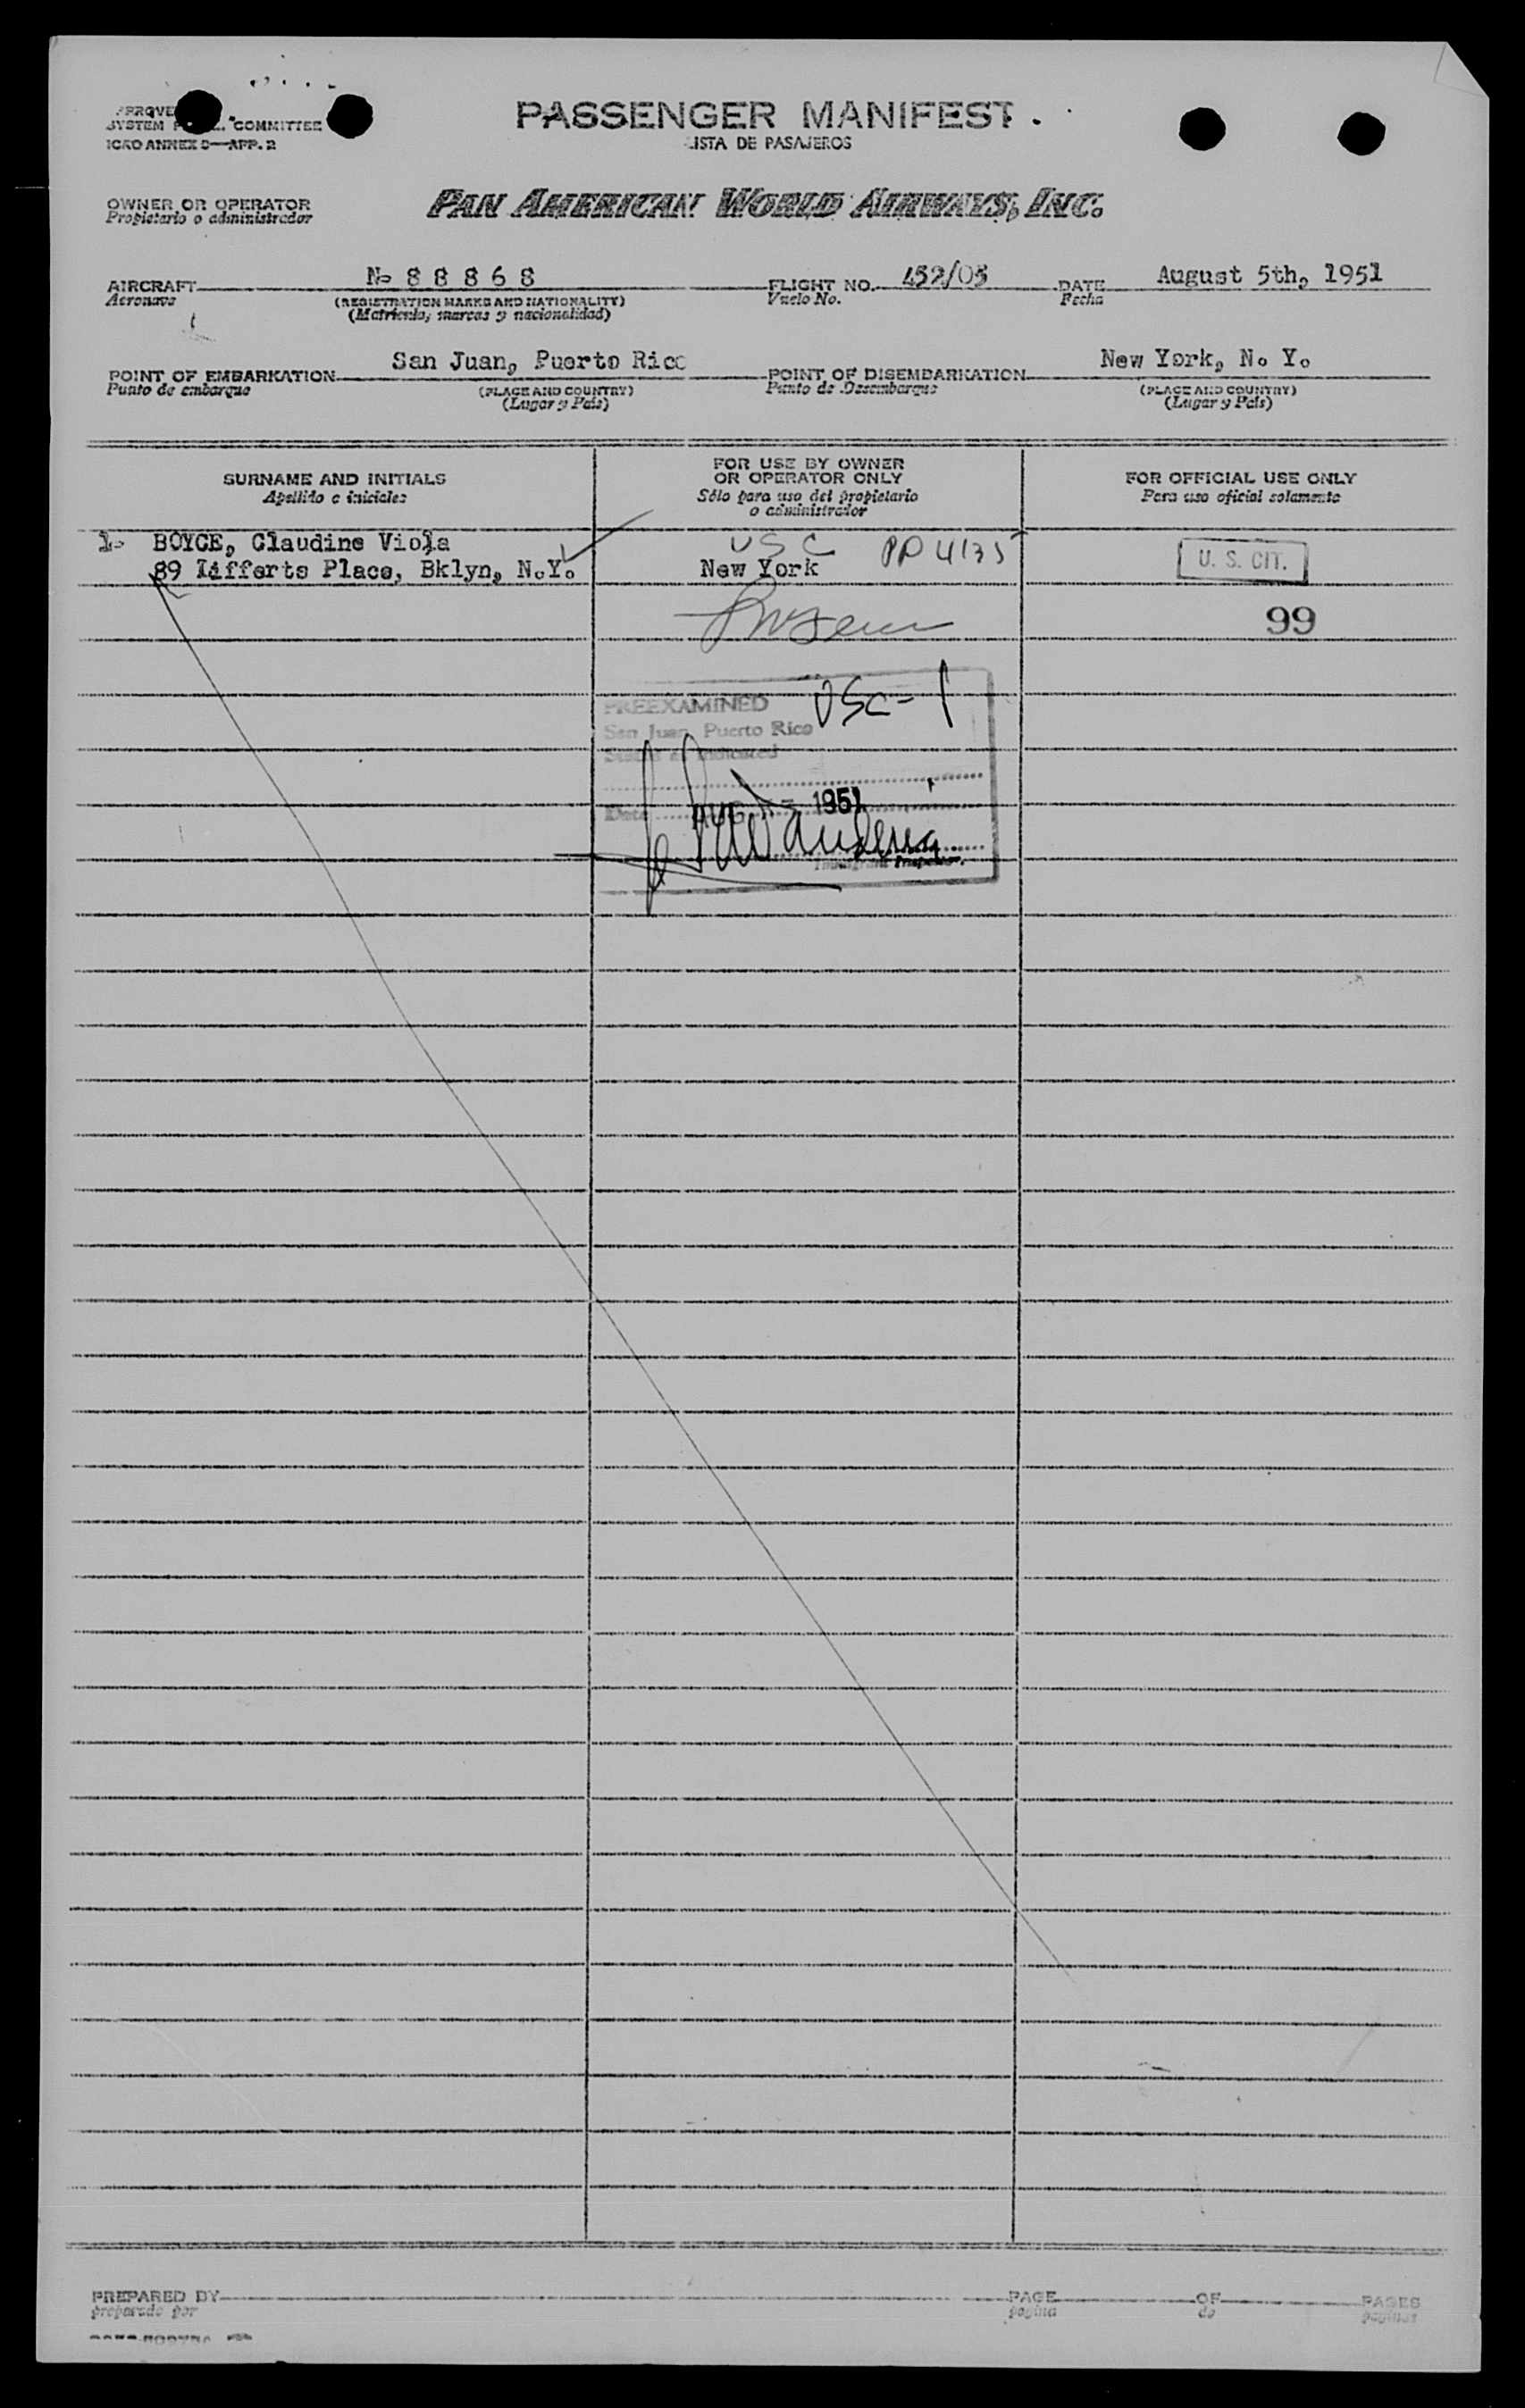 PASSENGER MANIFEST
LISTA DE PASAJEROS
SYSTEM COMMITTEE
ICAO ANNEX 9—APP. 2
OWNER OR OPERATOR
Propietario o administrador
PAN AMERICAN WORLD AIRWAYS, INC.
AIRCRAFT N- 8 8 8 6 8 FLIGHT NO. 452/05 DATE August 5th, 1951
Aeronave (REGISTRATION MARKS AND NATIONALITY) Vuelo No. Fecha
(Matrícula, marcas y nacionalidad)
POINT OF EMBARKATION San Juan, Puerto Rico POINT OF DISEMBARKATION New York, N. Y.
Punto de embarque (PLACE AND COUNTRY) Punto de Desembarque (PLACE AND COUNTRY)
(Lugar y País) (Lugar y País)
SURNAME AND INITIALS FOR USE BY OWNER OR OPERATOR ONLY FOR OFFICIAL USE ONLY
Apellido e iniciales Sólo para uso del propietario o administrador Para uso oficial solamente
1- BOYCE, Claudine Viola USC PP 4135 U. S. CIT.
89 Lifferts Place, Bklyn, N.Y. New York
99
PREEXAMINED USC-1
San Juan, Puerto Rico
Status as indicated
Date AUG 1951
Immigrant Inspector.
PREPARED BY PAGE OF PAGES
preparado por página de páginas